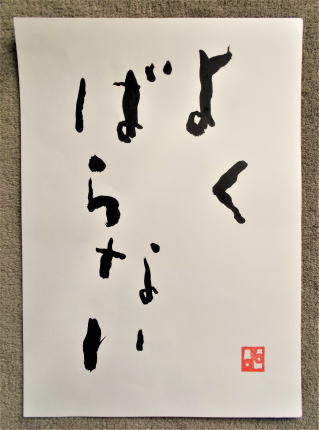 よく
ばらない